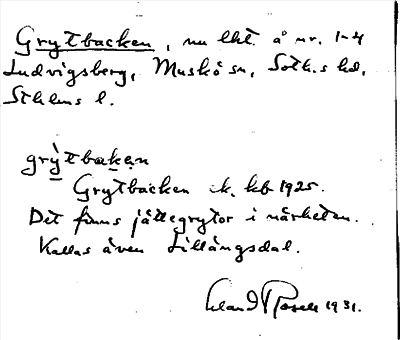 Grytbacken, nu lht. å nr. 1-4
Ludvigsberg, Muskö sn, Soth.s hd,
Sthlms l.
grỳtbaken
Grytbacken ek. kb 1925.
Det finns jättegrytor i närheten.
Kallas även Lillängsdal.
Rosell 1931.